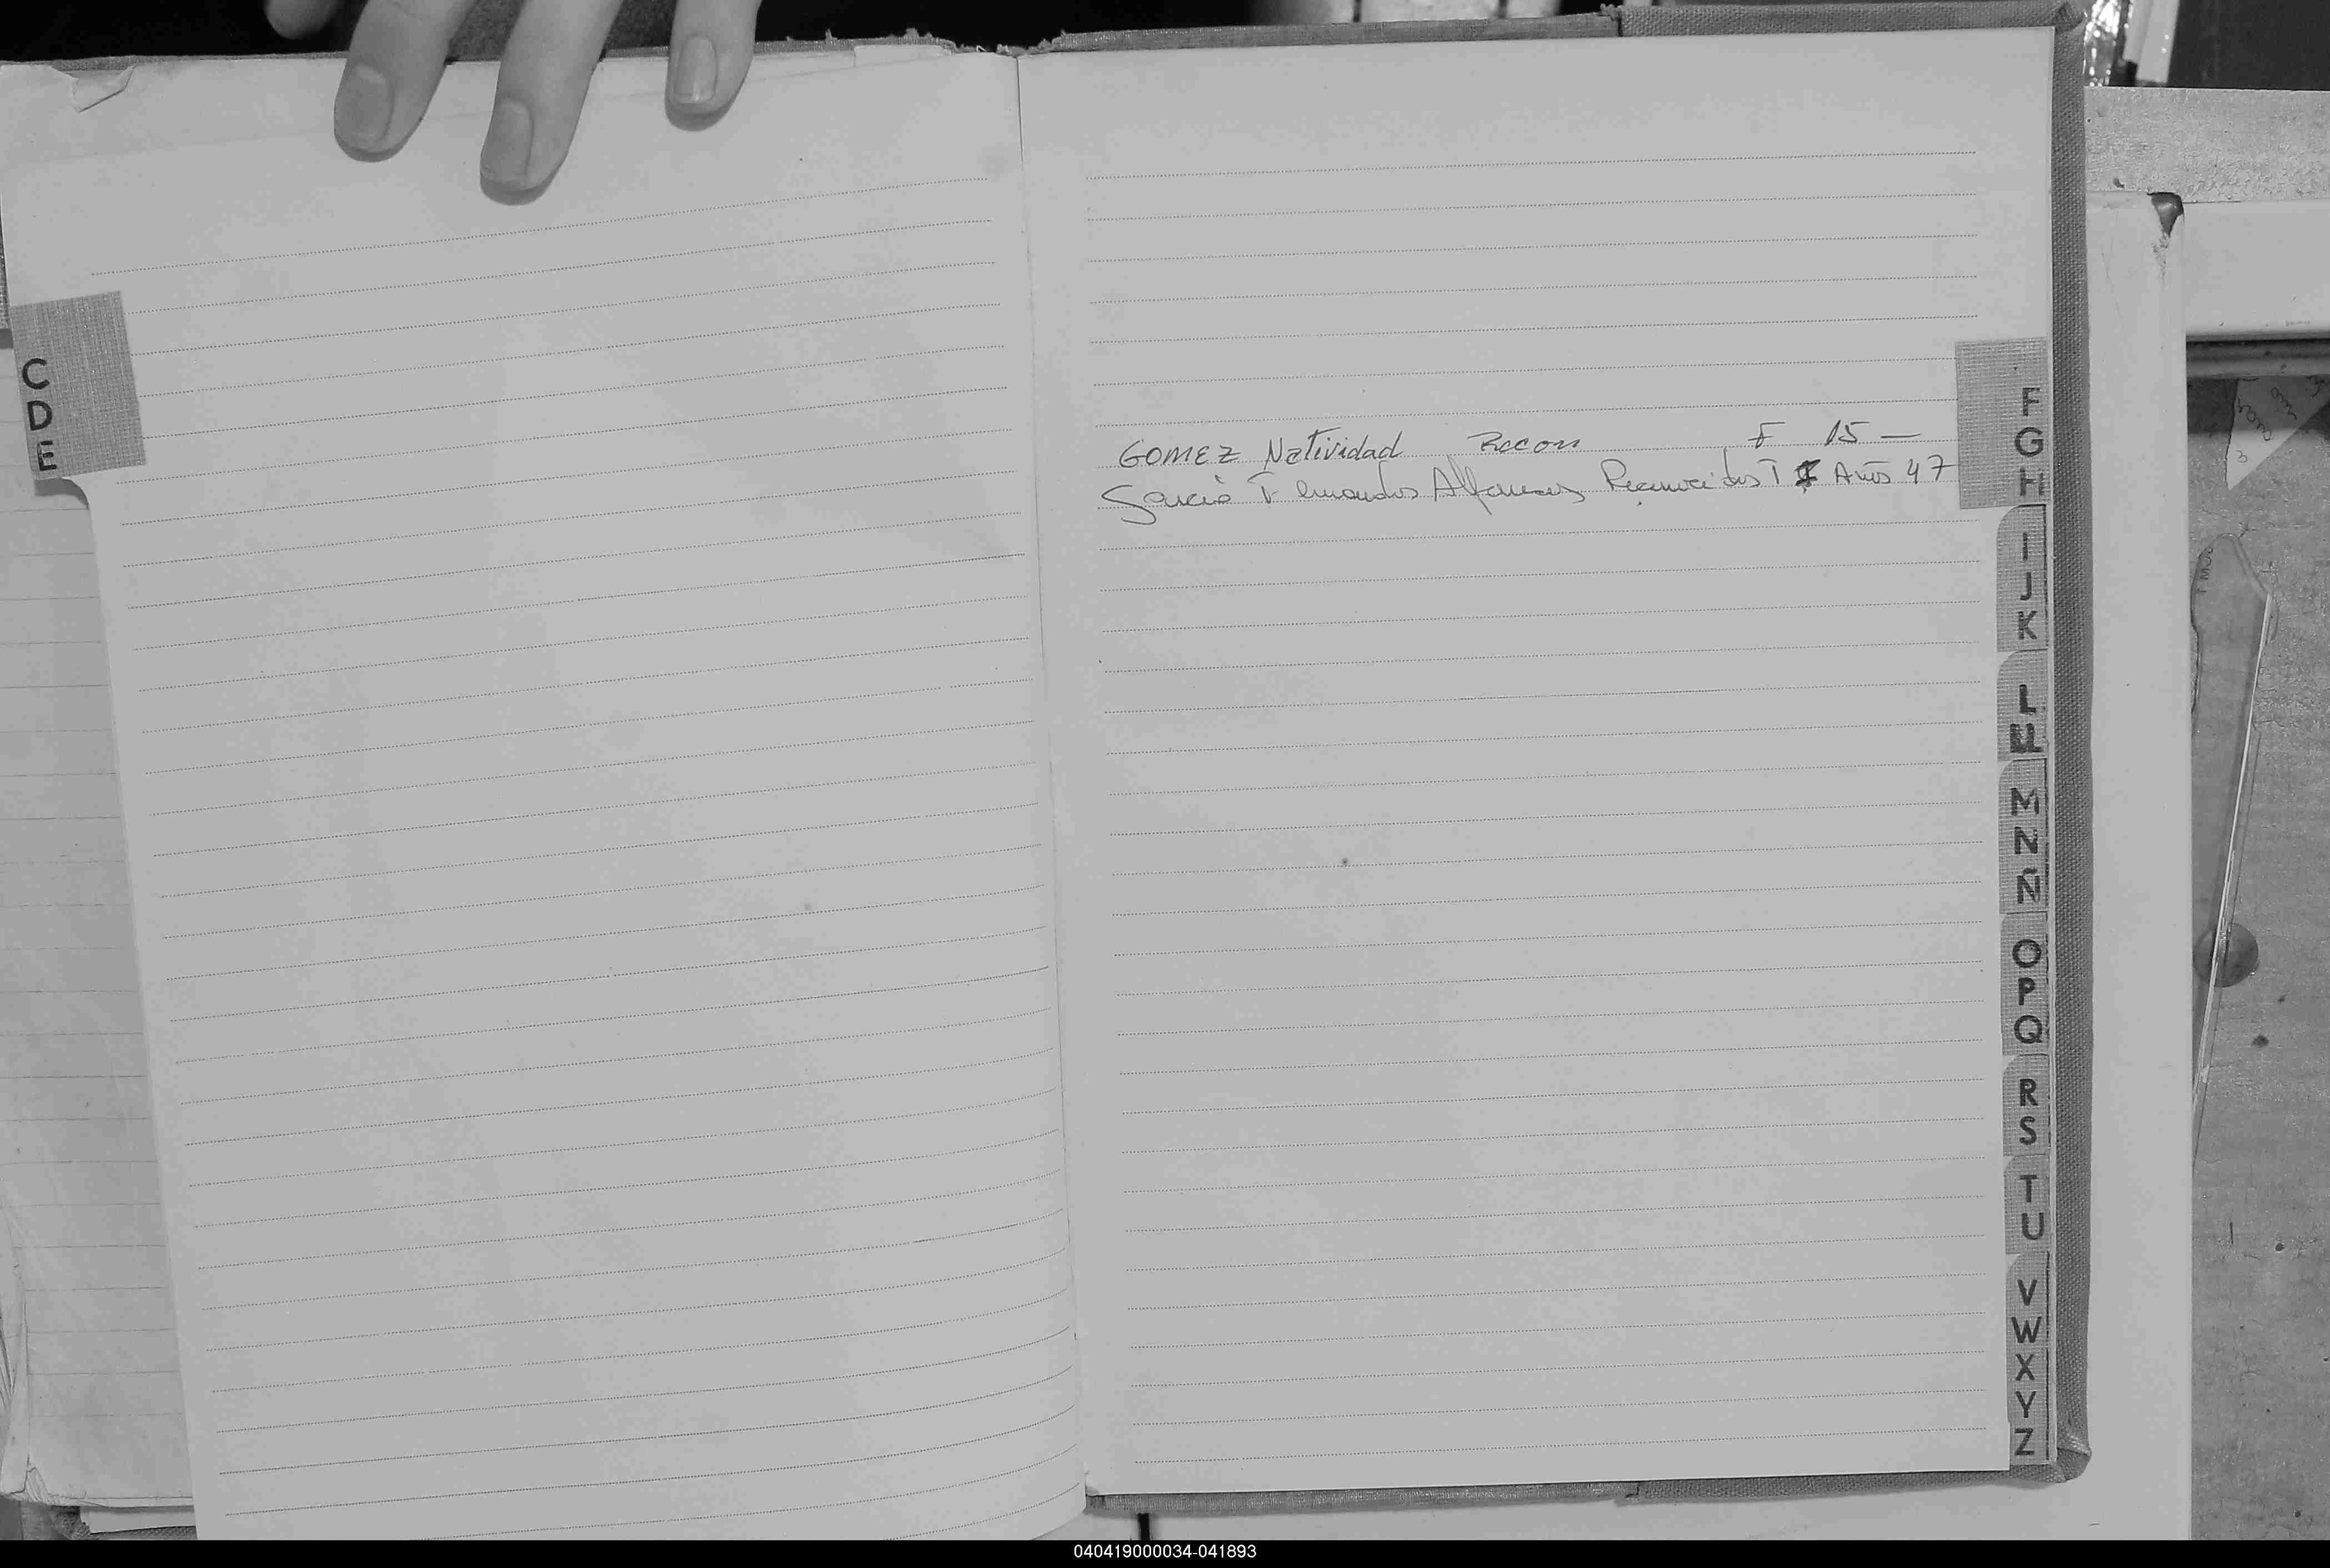 C
D
E
GOMEZ Natividad Recon F 15 —
Garcia Fernandos Reconocidos T I Años 47
F
G
H
I
J
K
L
M
N
Ñ
O
P
Q
R
S
T
U
V
W
X
Y
Z
040419000034-041893